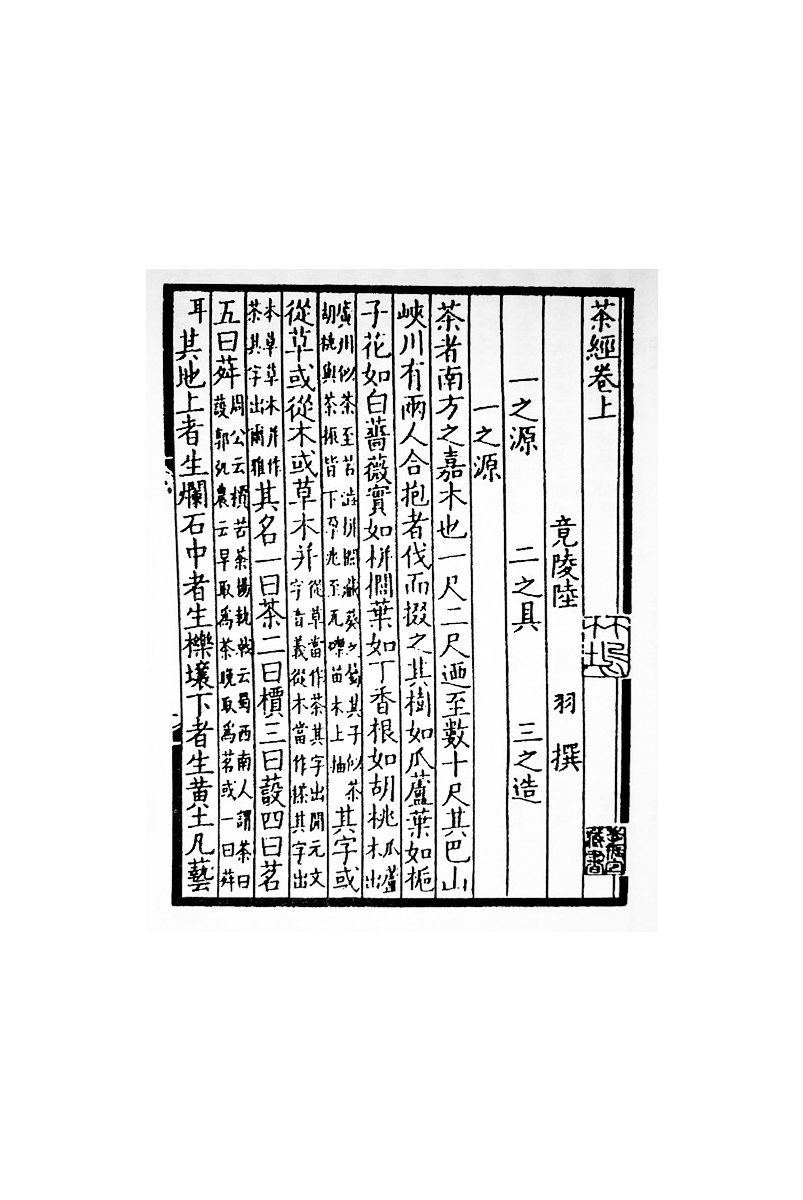 茶經卷上
竟陵陸 羽 撰
一之源 二之具 三之造
一之源
茶者南方之嘉木也一尺二尺迺至數十尺其巴山
峽川有兩人合抱者伐而掇之其樹如瓜蘆葉如梔
子花如白薔薇實如栟櫚葉如丁香根如胡桃瓜蘆木出
廣川似茶至苦澁栟櫚蒲葵之屬其子似茶胡桃與茶根皆下孕兆至瓦礫苗木上抽其字或
從草或從木或草木并從草當作茶其字出開元文字音義從木當作搽其字出
本草草木并作茶其字出爾雅其名一曰茶二曰檟三曰蔎四曰茗
五曰荈周公云檟苦茶揚執戟云蜀西南人謂茶曰蔎郭弘農云早取爲茶晚取爲茗或一曰荈
耳其地上者生爛石中者生櫟壤下者生黄土凡藝